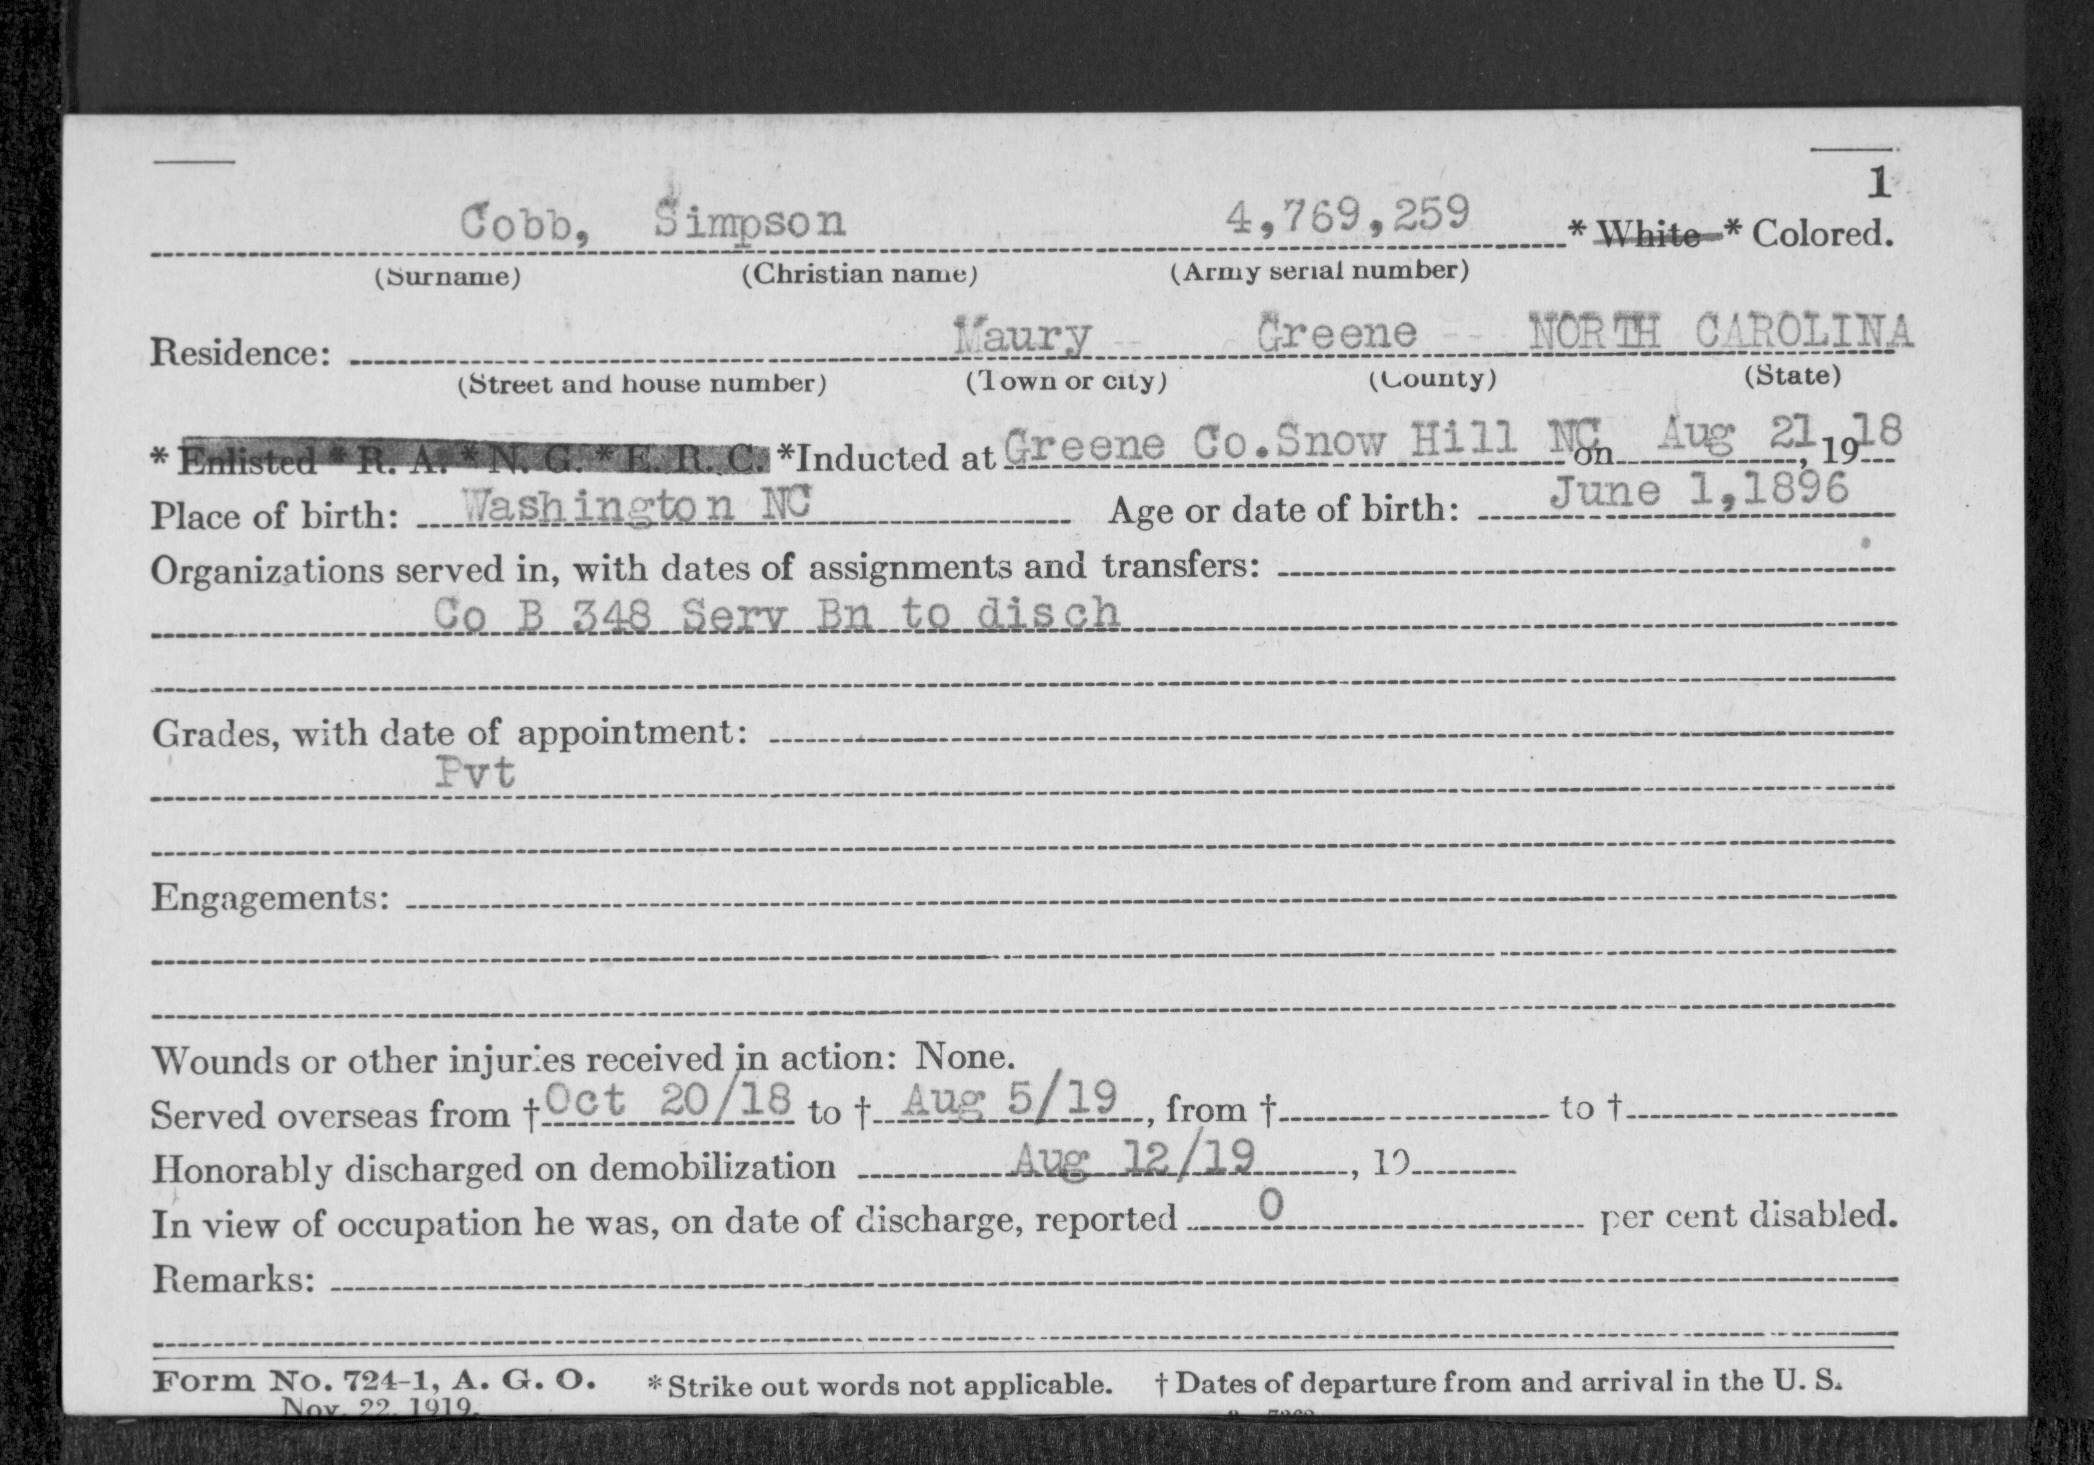 1
Cobb, Simpson 4,769,259 * White * Colored.
(Surname) (Christian name) (Army serial number)
Residence: Maury Greene NORTH CAROLINA
(Street and house number) (Town or city) (County) (State)
* Enlisted * R. A. * N. G. * E. R. C. *Inducted at Greene Co.Snow Hill NC on Aug 21, 1918
Place of birth: Washington NC Age or date of birth: June 1,1896
Organizations served in, with dates of assignments and transfers:
Co B 348 Serv Bn to disch
Grades, with date of appointment:
Pvt
Engagements:
Wounds or other injuries received in action: None.
Served overseas from † Oct 20/18 to † Aug 5/19, from † to †
Honorably discharged on demobilization Aug 12/19, 19
In view of occupation he was, on date of discharge, reported 0 per cent disabled.
Remarks:
Form No. 724-1, A. G. O. *Strike out words not applicable. † Dates of departure from and arrival in the U. S.
Nov. 22, 1919.